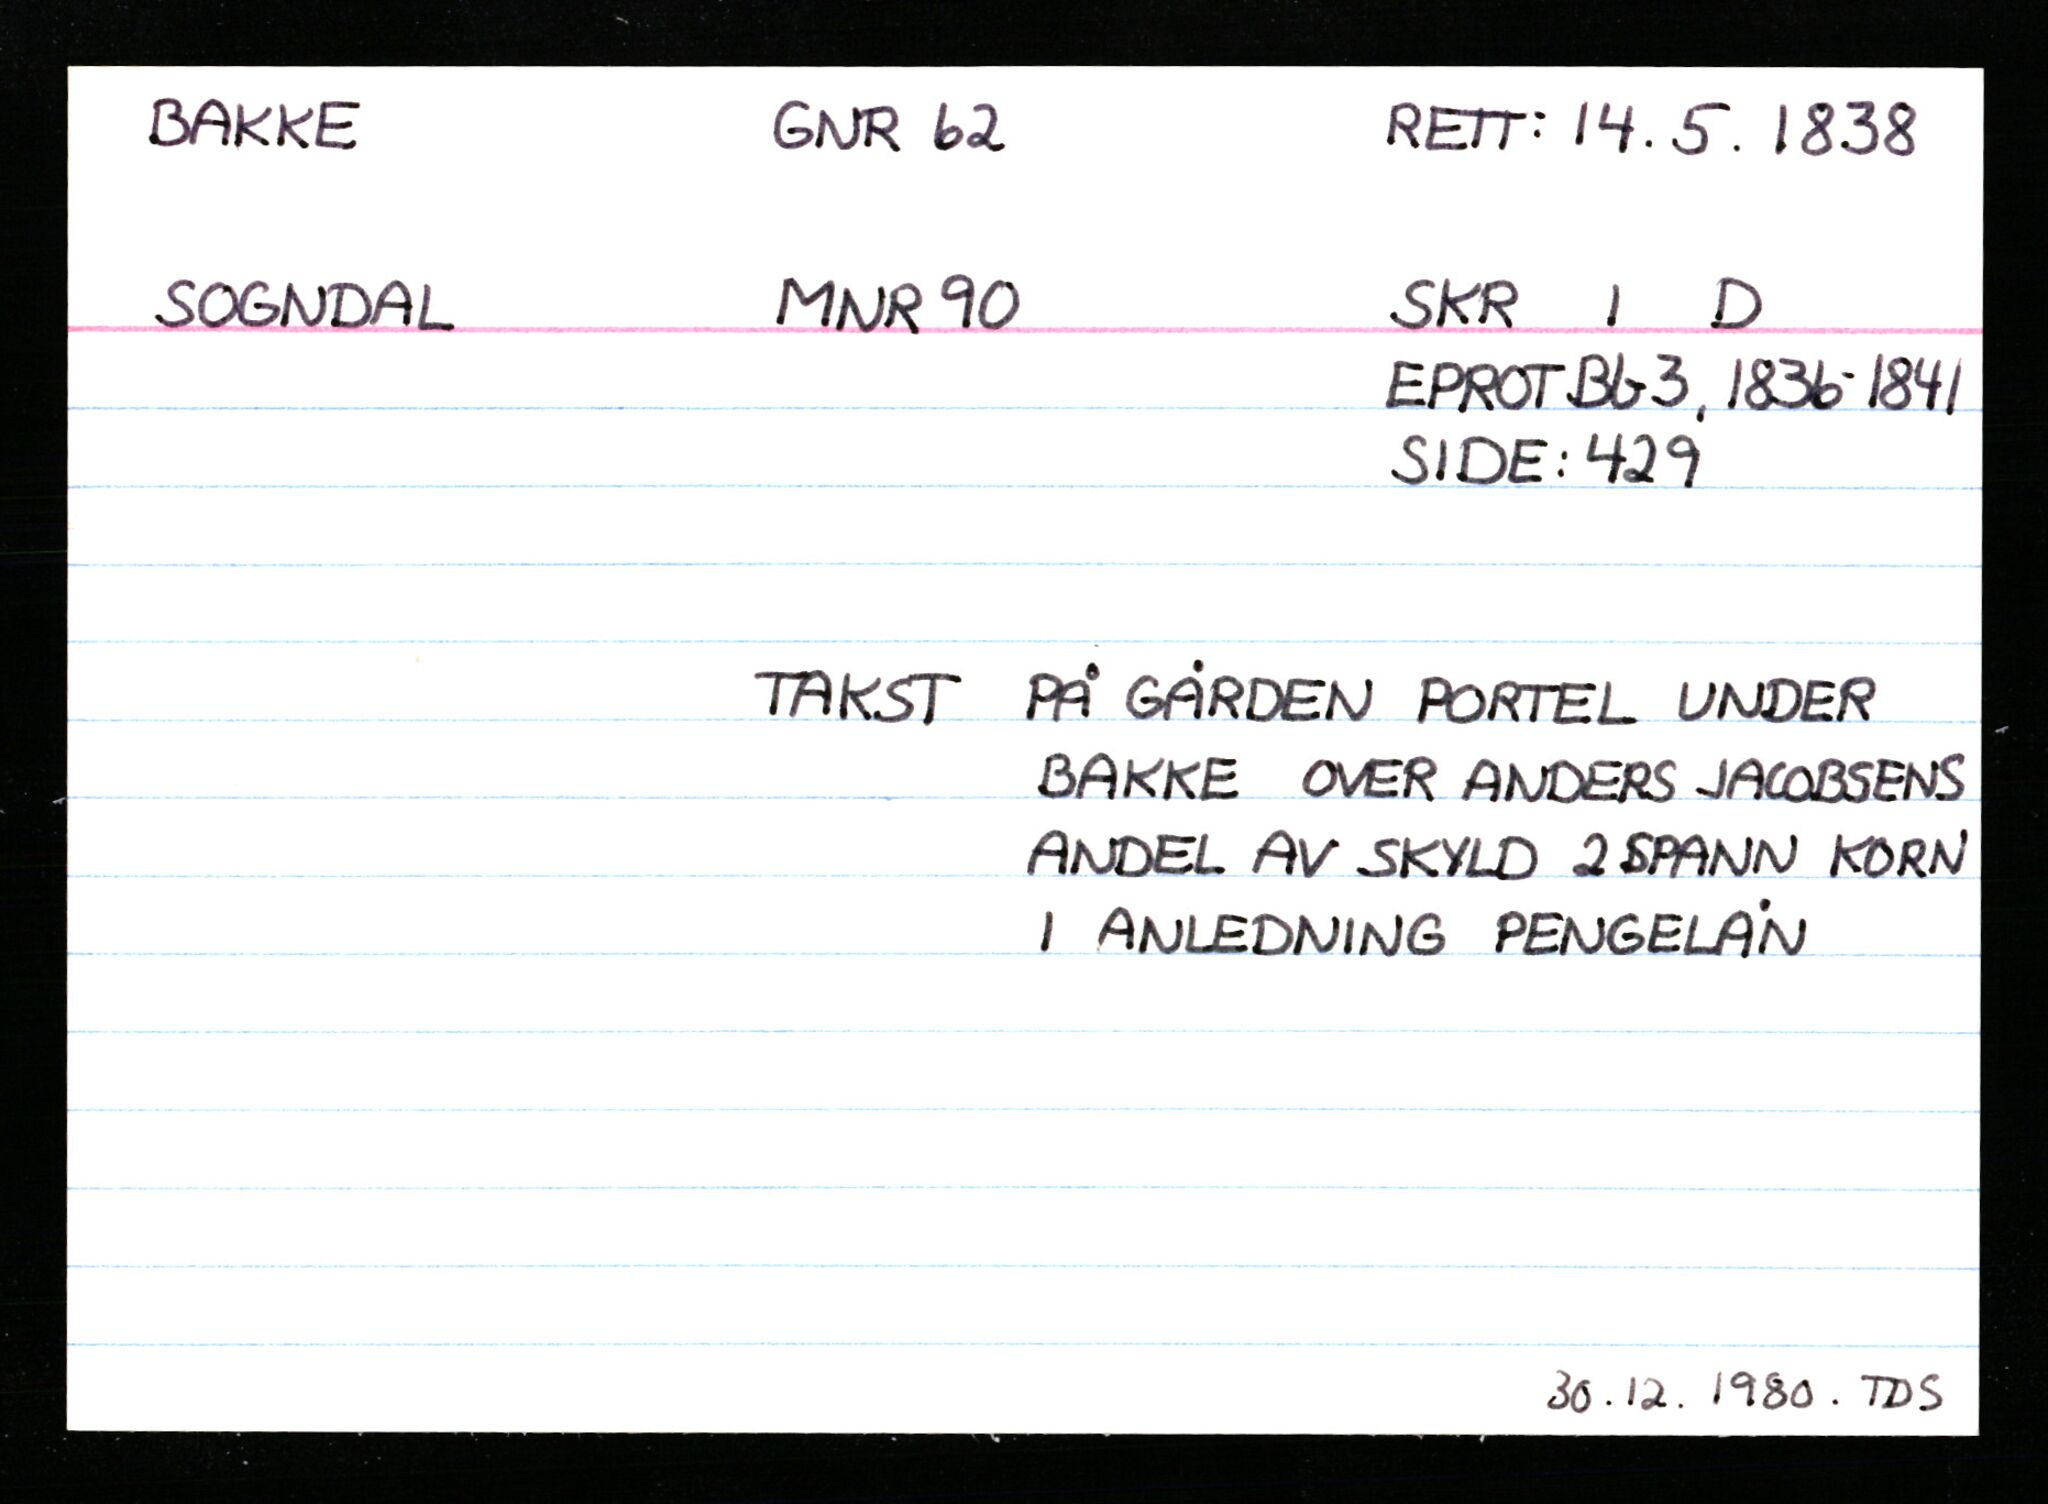 BAKKE GNR 62 RETT: 14. 5. 1838
SOGNDAL MNR 90 SKR I D
EPROT Bb 3, 1836-1841
SIDE: 429
TAKST PÅ GÅRDEN PORTEL UNDER
BAKKE OVER ANDERS JACOBSENS
ANDEL AV SKYLD 2 SPANN KORN
I ANLEDNING PENGELÅN
30.12. 1980. TDS